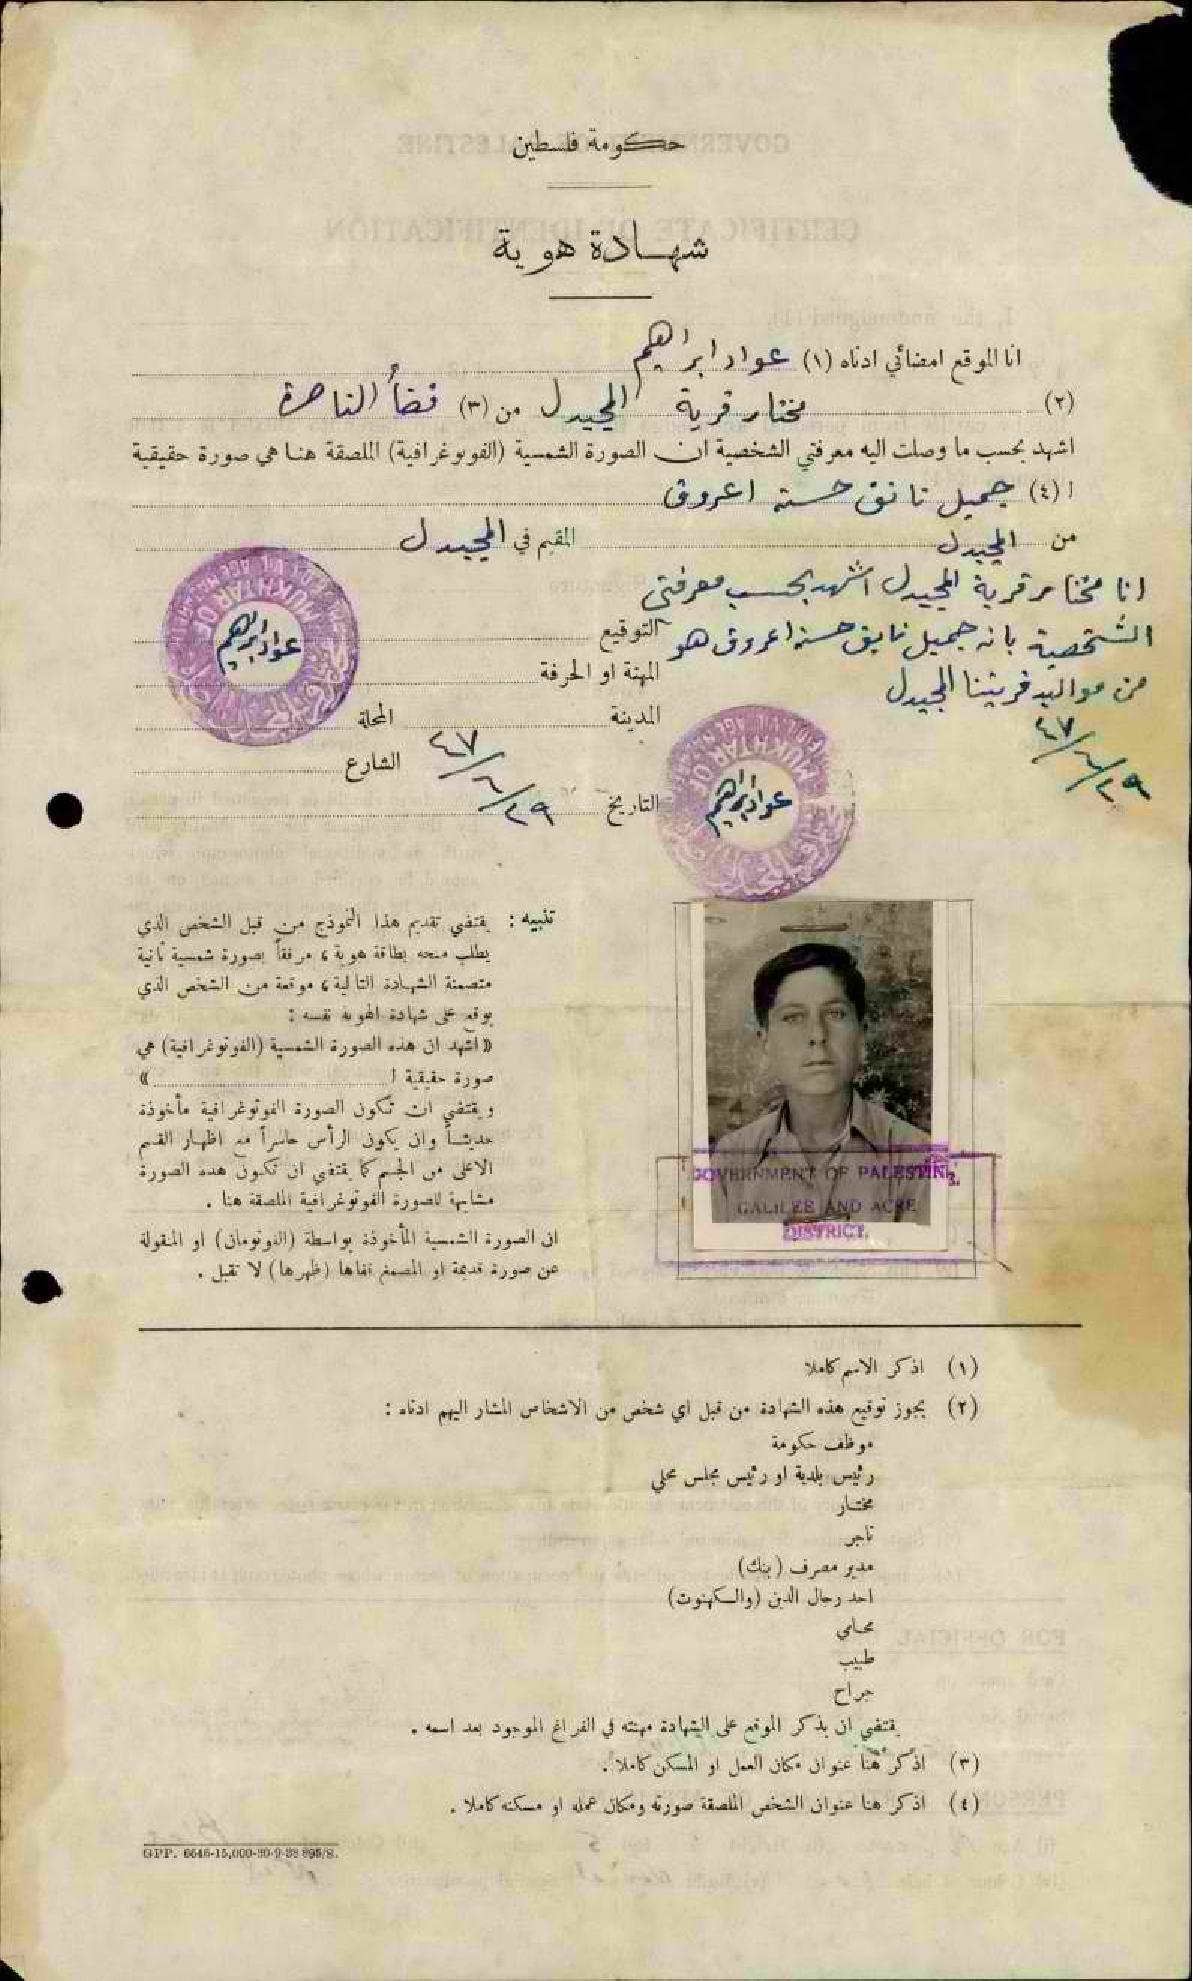 حكومة فلسطين
شهادة هوية
انا الموقع امضائي ادناه (١) عواد ابراهيم
(٢) مختار قرية المجيدل من (٣) قضاء الناصرة
اشهد بحسب ما وصلت اليه معرفتي الشخصية ان الصورة الشمسية (الفوتوغرافية) الملصقة هنا هي صورة حقيقية
ا (٤) جميل نايق حسنه اعروق
من المجيدل المقيم في المجيدل
انا مختار قرية المجيدل اشهد بحسب معرفتي
الشخصية بانه جميل نايق حسنه اعروق هو
من مواليد قريتنا المجيدل
٢٩/٦/٤٧
التوقيع
المهنة او الحرفة
المدينة المحلة
الشارع
التاريخ ٢٩/٦/٤٧
MUKHTAR OF
عواد ابراهيم
MUKHTAR OF
عواد ابراهيم
تنبيه : يقتضي تقديم هذا النموذج من قبل الشخص الذي
يطلب منحه بطاقة هوية ، مرفقاً بصورة شمسية ثانية
متضمنة الشهادة التالية ، موقعة من الشخص الذي
يوقع على شهادة الهوية نفسه :
« اشهد ان هذه الصورة الشمسية (الفوتوغرافية) هي
صورة حقيقية ا »
ويقتضي ان تكون الصورة الفوتوغرافية مأخوذة
حديثاً وان يكون الرأس حاسراً مع اظهار القسم
الاعلى من الجسم كما يقتضي ان تكون هذه الصورة
مشابهة للصورة الفوتوغرافية الملصقة هنا .
ان الصورة الشمسية المأخوذة بواسطة (الفوتومان) او المنقولة
عن صورة قديمة او المصمغ قفاها (ظهرها) لا تقبل .
GOVERNMENT OF PALESTINE.
GALILEE AND ACRE
DISTRICT.
(١) اذكر الاسم كاملا
(٢) يجوز توقيع هذه الشهادة من قبل اي شخص من الاشخاص المشار اليهم ادناه :
موظف حكومة
رئيس بلدية او رئيس مجلس محلي
مختار
تاجر
مدير مصرف (بنك)
احد رجال الدين (والكهنوت)
محامي
طبيب
جراح
يقتضي ان يذكر الموقع على الشهادة مهنته في الفراغ الموجود بعد اسمه .
(٣) اذكر هنا عنوان مكان العمل او المسكن كاملا .
(٤) اذكر هنا عنوان الشخص الملصقة صورته ومكان عمله او مسكنه كاملا .
GPP. 6646-15,000-30-9-38 895/S.